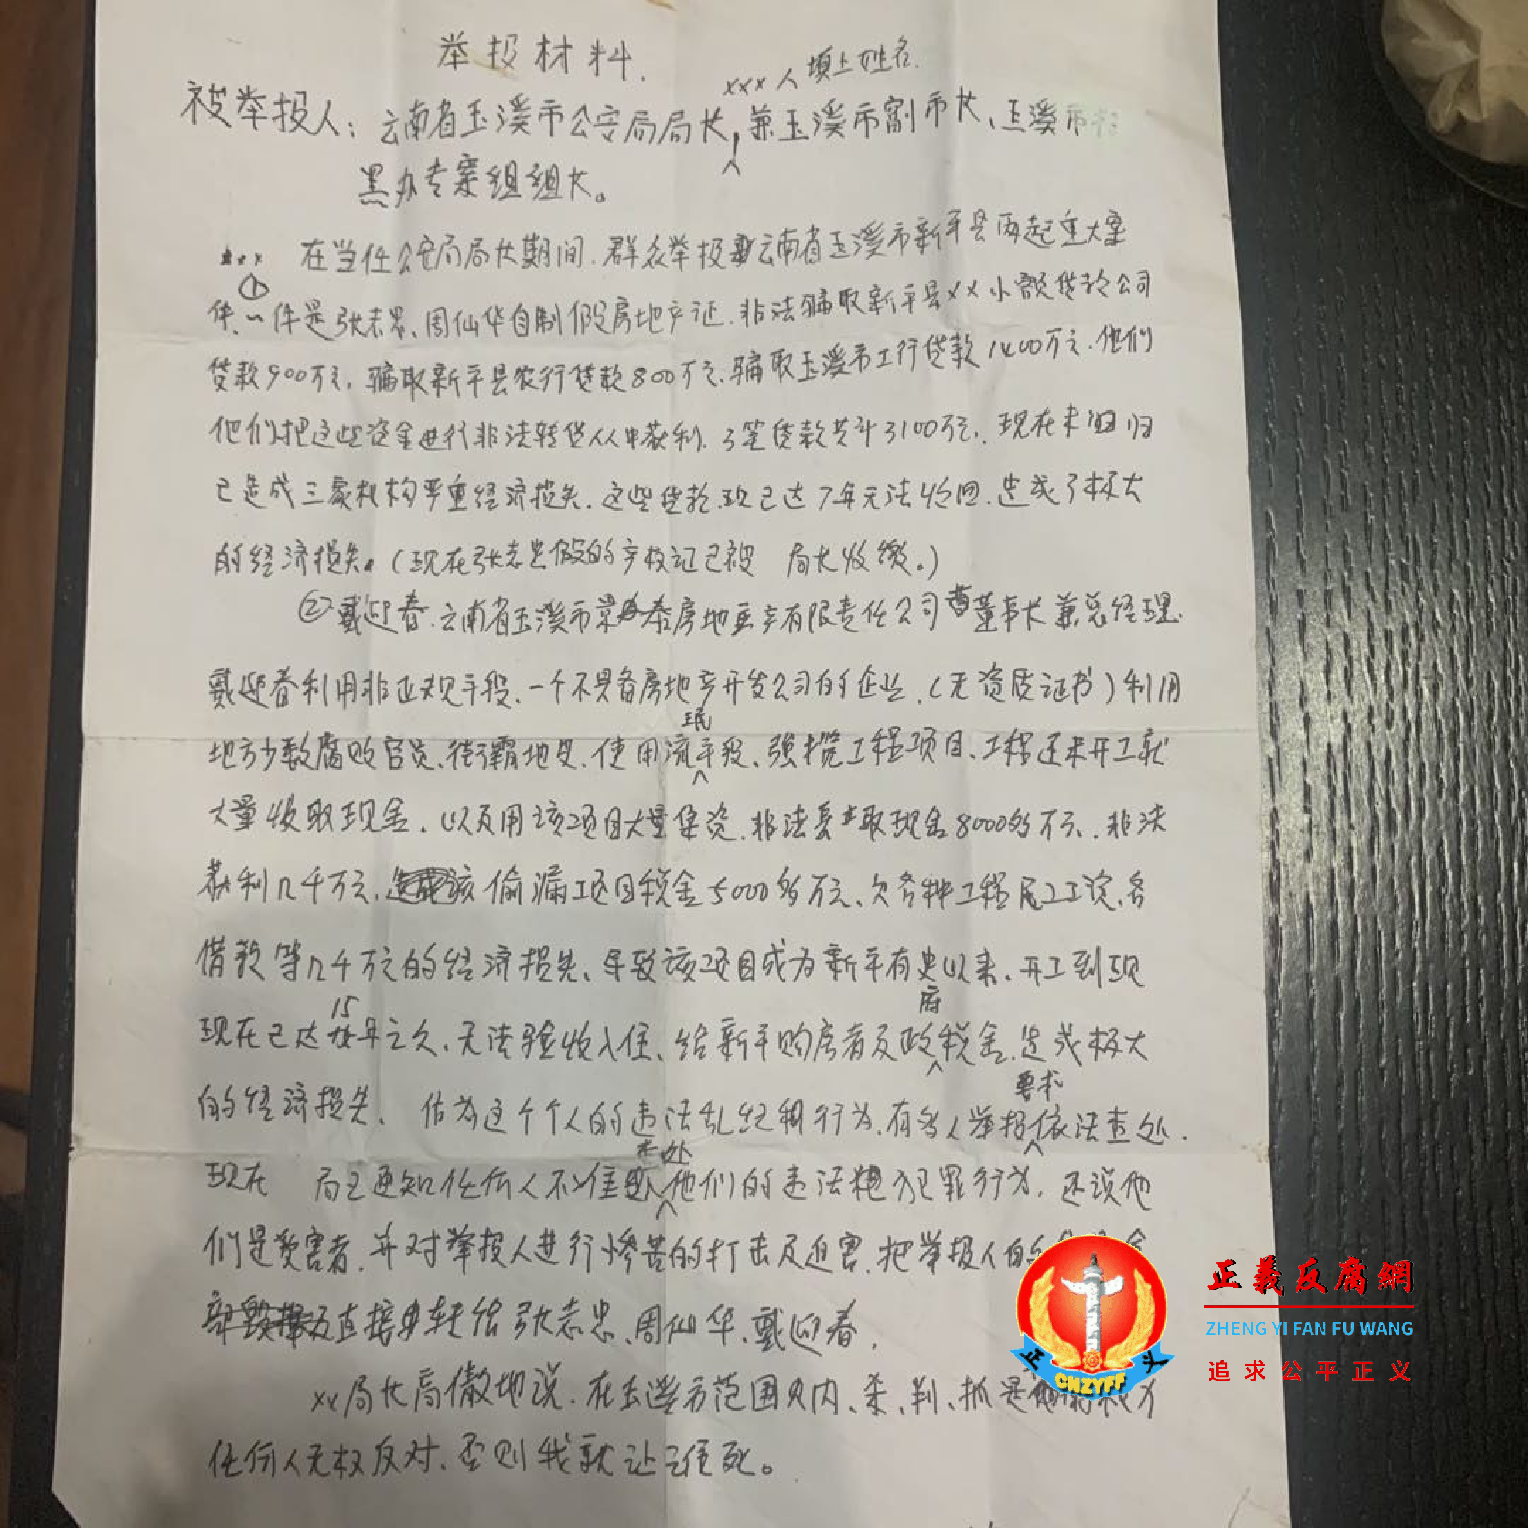 举报材料.
xxx人填上姓名.
被举报人：云南省玉溪市公安局局长，兼玉溪市副市长、玉溪市
黑办专案组组长。
xxx 在当任公安局局长期间.群众举报云南省玉溪市新平县两起重大案
件、①一件是张志忠、周仙华自制假房地产证.非法骗取新平县xx小额贷款公司
贷款900万元，骗取新平县农行贷款800万元.骗取玉溪市工行贷款1400万元.他们
他们把这些资金进行非法转贷从中获利.3笔贷款共计3100万元.现在未归归
已造成三家机构严重经济损失.这些贷款.现已达7年无法收回.造成了极大
的经济损失。(现在张志忠假的产权证已被 局长收缴。)
②戴迎春.云南省玉溪市 泰房地产有限责任公司董事长兼总经理.
戴迎春利用非正规手段、一个不具备房地产开发公司的企业.(无资质证书)利用
地方少数腐败官员、街霸地皮.使用流氓手段、强揽工程项目、工程还未开工就
大量收取现金、以及用该项目大量集资.非法 取现金8000多万元.非法
获利几千万元、该偷漏项目税金5000多万元、欠各种工程 工资、各
借款等几千万元的经济损失、导致该项目成为新平有史以来、开工到现
现在已达15年之久、无法验收入住、给新平购房者及政府税金.造成极大
的经济损失、 估为这个个人的违法乱纪 行为.有多人举报要求依法查处.
现在 局 通知任何人不准 查处他们的违法 犯罪行为.还说他
们是受害者.并对举报人进行惨苦的打击及迫害.把举报人的
直接 转给张志忠、周仙华、戴迎春.
xx局长局傲地说.在玉溪市范围 内、杀、判、抓是他的权力
任何人无权反对、否则我就让谁死。
正義反腐網
ZHENG YI FAN FU WANG
追求公平正义
正义
CNZYFF